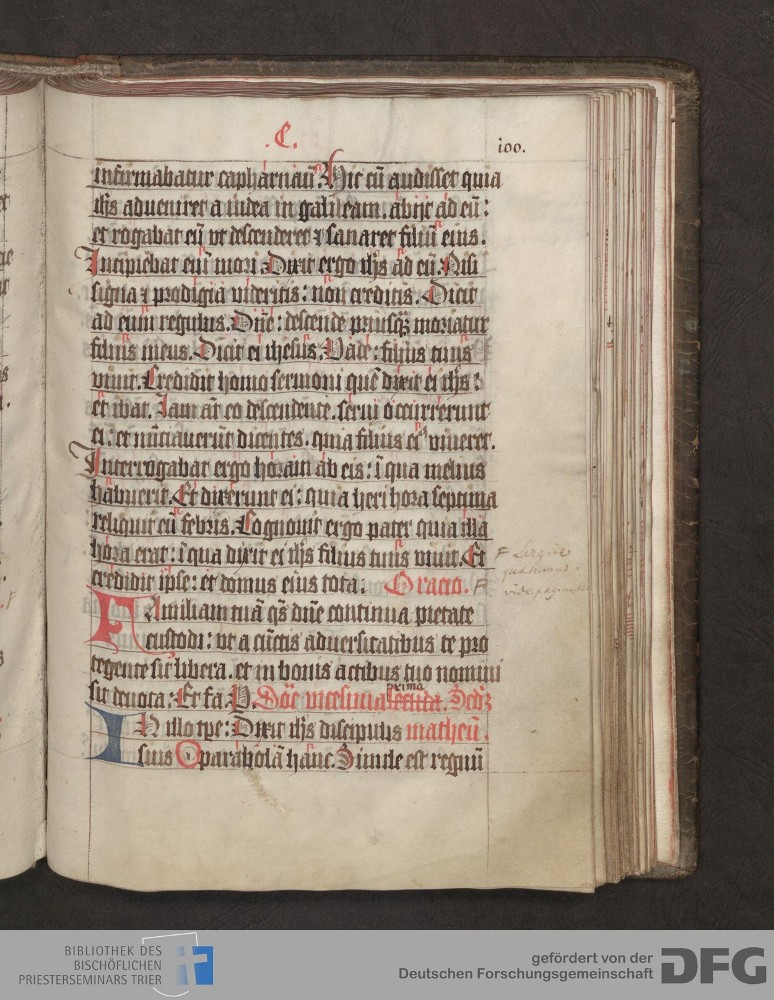 .C.
ioo.
infirmabatur capharnaū. Hic cū audisset quia
ihs adueniret a iudea in galileam. abijt ad eū:
et rogabat eū vt descenderet ⁊ sanaret filiū eius.
Incipiebat eni mori. Dixit ergo ihs ad eū. Nisi
signa ⁊ prodigia videritis: non creditis. Dicit
ad eum regulus. Dn̄e: descende priusqȝ moriatur
filius meus. Dicit ei ihesus. Vade: filius tuus
viuit. Credidit homo sermoni quē dixit ei ihs:
et ibat. Iam aūt eo descendente. serui occurrerunt
ei: et nūciauerūt dicentes. quia filius eiꝰ viueret.
Interrogabat ergo horam ab eis: ī qua melius
habuerit. Et dixerunt ei: quia heri hora septima
reliquit eū febris. Cognouit ergo pater quia illa
hora erat: ī qua dixit ei ihs filius tuus viuit. Et
credidit ipse: et domus eius tota. Oracio.
Familiam tuā qs̄ dn̄e continua pietate
custodi: vt a cūctis aduersitatibus te pro
tegente sit libera. et in bonis actibus tuo nomini
sit deuota: Et fa. P. Dōc vicesima prima secunda. Scdȝ
IN illo tpe: Dixit ihs discipulis matheū.
suis parabolā hanc. Simile est regnū
BIBLIOTHEK DES
BISCHÖFLICHEN
PRIESTERSEMINARS TRIER
gefördert von der
Deutschen Forschungsgemeinschaft
DFG